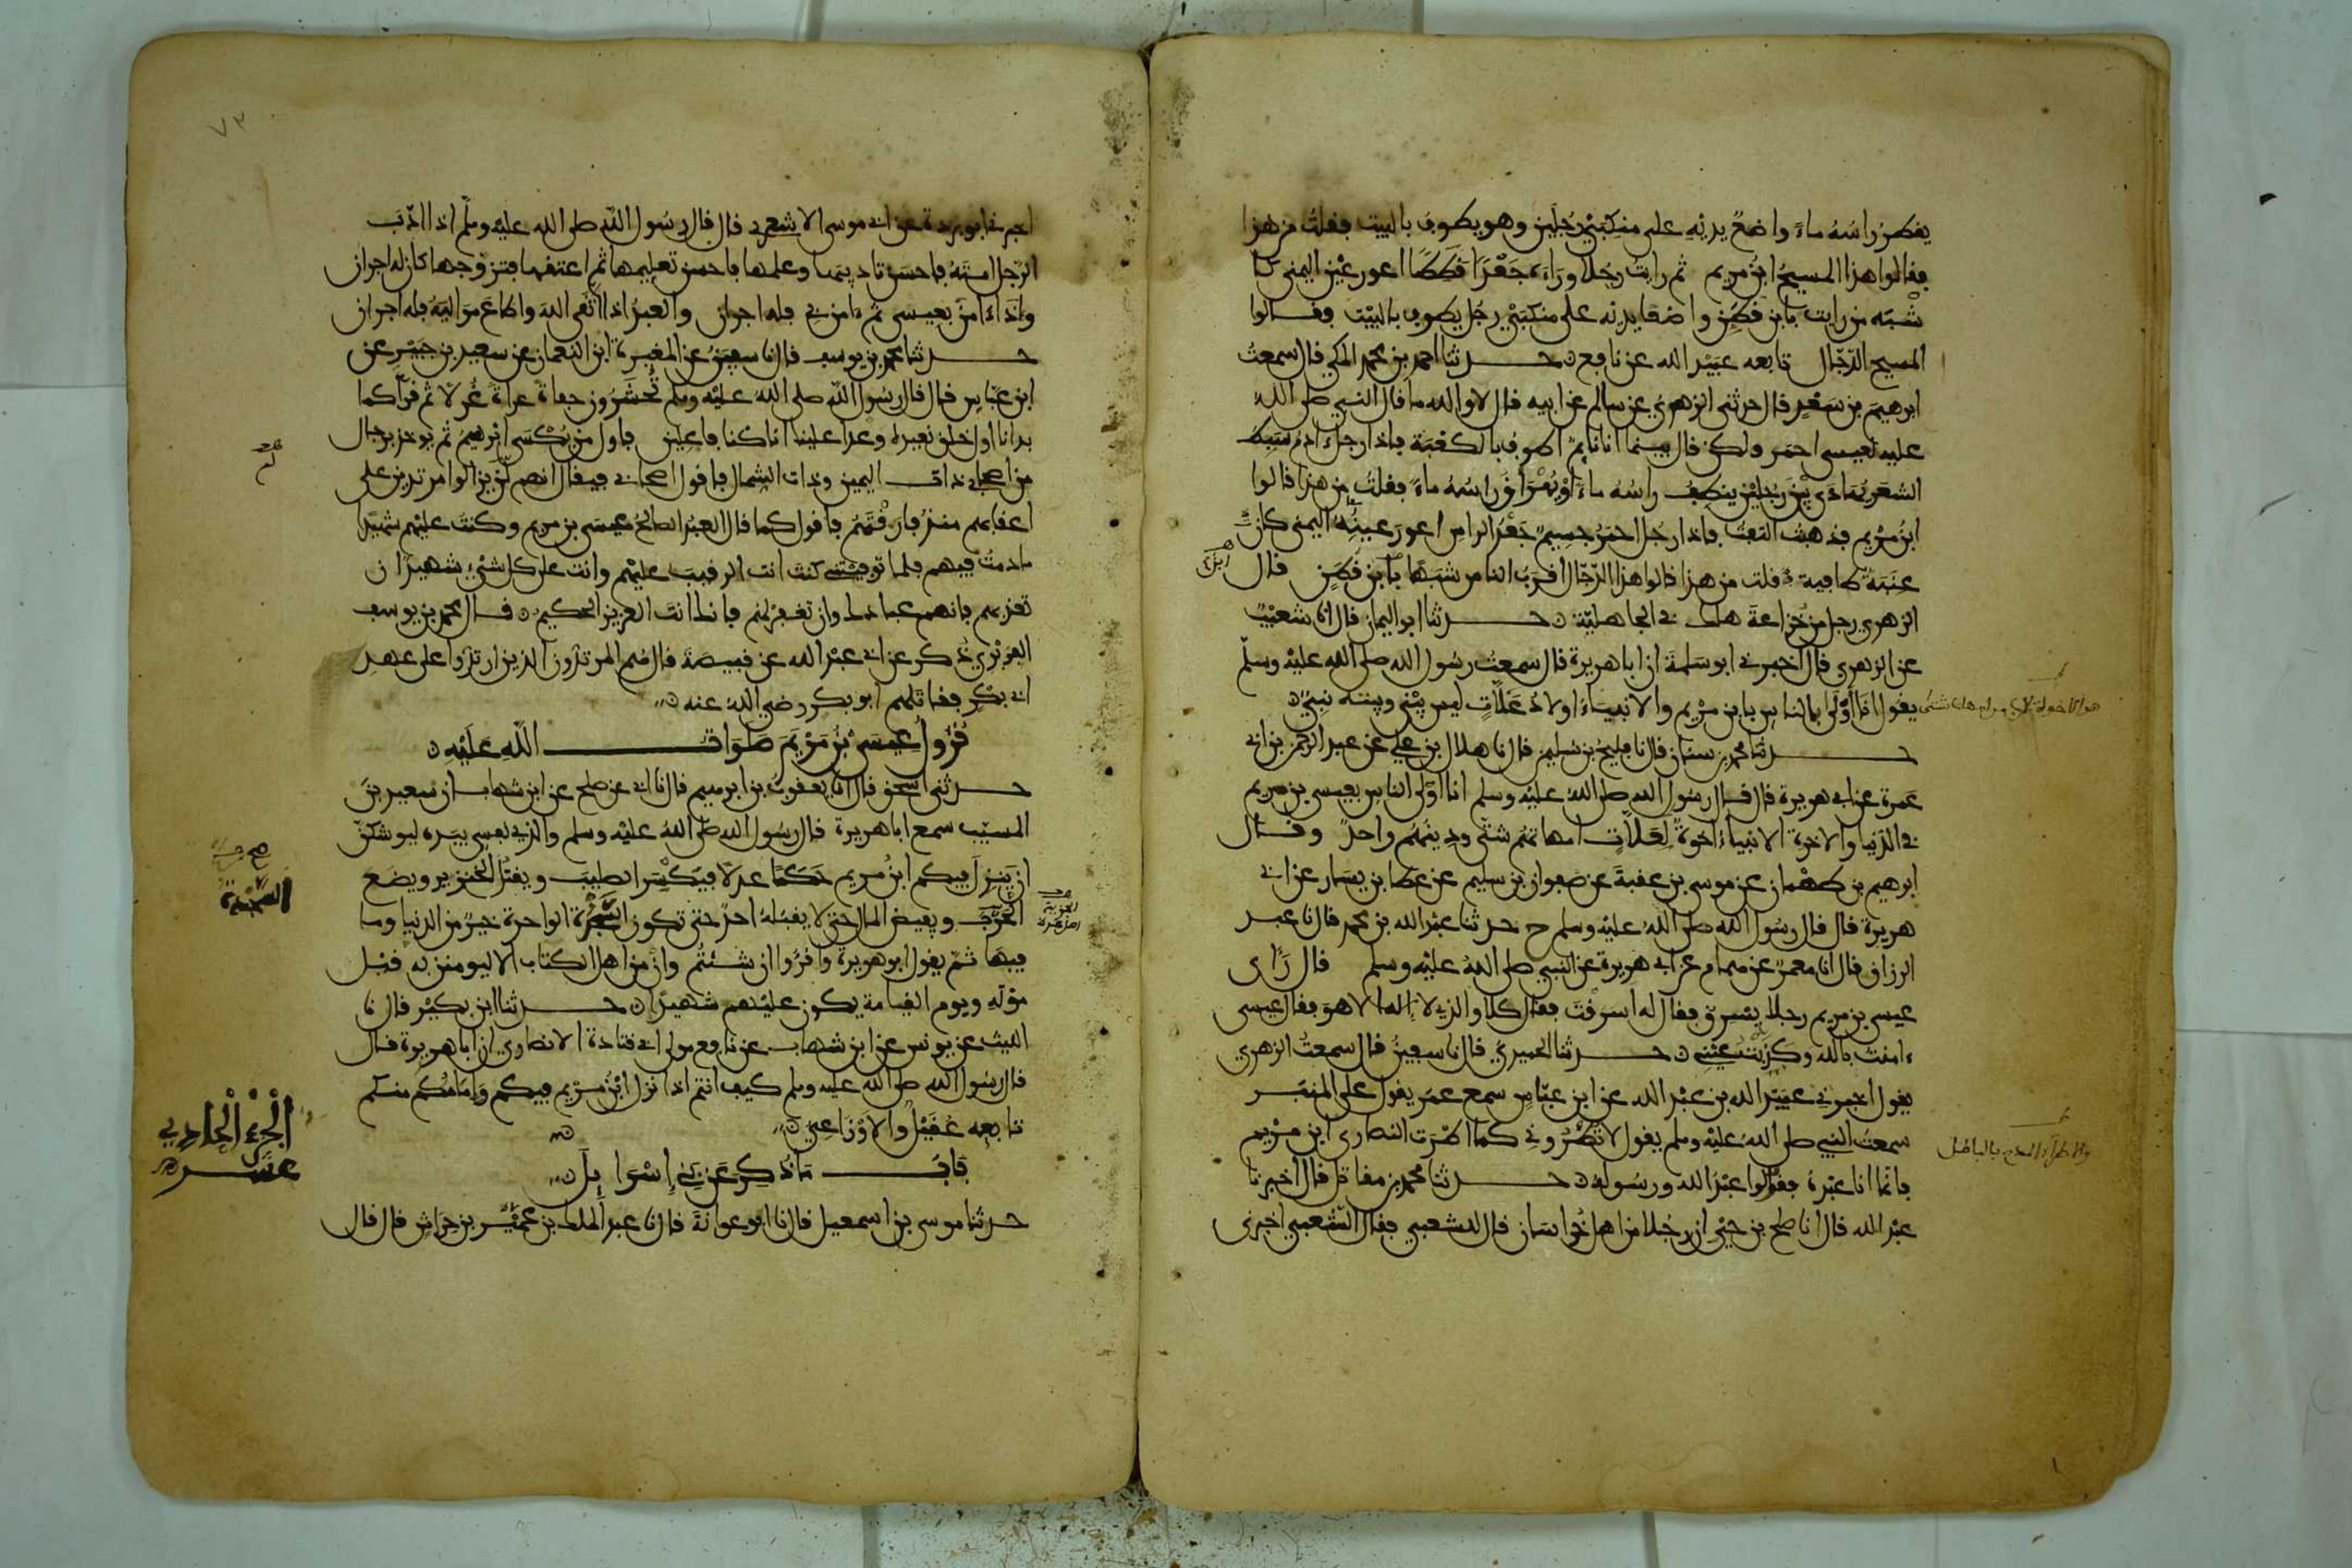 يقطر راسه ماء واضعا يديه على منكبي رجلين وهو يطوف بالبيت فقلت من هذا
فقالوا هذا المسيح ابن مريم ثم رايت رجلا وراءه جعدا قططا اعور عين اليمنى كا
شبه من رايت بابن قطن واضعا يديه على منكبي رجل يطوف بالبيت فقالوا
المسيح الدجال تابعه عبيد الله عن نافع حدثنا احمد بن محمد المكي قال سمعت
ابرهيم بن سعد قال حدثني الزهري عن سالم عن ابيه قال لا والله ما قال النبي صلى الله
عليه لعيسى احمر ولكن قال بينما انا نايم اطوف بالكعبة فاذا رجل ادم سبط
الشعر يهادى بين رجلين ينطف راسه ماء او يهراق راسه ماء فقلت من هذا قالوا
ابن مريم فذهبت التفت فاذا رجل احمر جسيم جعد الراس اعور عينه اليمنى كان
عنبة طافية قلت من هذا قالوا هذا الدجال اقرب الناس شبها بابن قطن قال
الزهري رجل من خزاعة هلك في الجاهلية حدثنا ابو اليمان قال انا شعيب
عن الزهري قال اخبرني ابو سلمة ان ابا هريرة قال سمعت رسول الله صلى الله عليه وسلم
يقول انا اولى الناس بابن مريم والانبياء اولاد علات ليس بيني وبينه نبي
حدثنا محمد بن سنان قال نا فليح بن سليم قال نا هلال بن علي عن عبد الرحمن بن ابي
عمرة عن ابي هريرة قال قال رسول الله صلى الله عليه وسلم انا اولى الناس بعيسى بن مريم
في الدنيا والاخرة الانبياء اخوة لعلات امهاتهم شتى ودينهم واحد وقال
ابرهيم بن طهمان عن موسى بن عقبة عن صفوان بن سليم عن عطا بن يسار عن ابي
هريرة قال قال رسول الله صلى الله عليه وسلم ح حدثنا عبد الله بن محمد قال نا عبد
الرزاق قال انا معمر عن همام عن ابي هريرة عن النبي صلى الله عليه وسلم قال راى
عيسى بن مريم رجلا يسرق فقال له اسرقت فقال كلا والذي لا اله الا هو فقال عيسى
ءامنت بالله وكذبت عيني حدثنا الحميدي قال نا سفين قال سمعت الزهري
يقول اخبرني عبيد الله بن عبد الله عن ابن عباس سمع عمر يقول على المنبر
سمعت النبي صلى الله عليه وسلم يقول لا تطروني كما اطرت النصارى ابن مريم
فانما انا عبده فقولوا عبد الله ورسوله حدثنا محمد بن مقاتل قال اخبرنا
عبد الله قال انا صلح بن حي ان رجلا من اهل خراسان قال للشعبي فقال الشعبي اخبرني
والاطراء المدح بالباطل
٧٣
اخبرني ابو بردة عن ابي موسى الاشعري قال قال رسول الله صلى الله عليه وسلم اذا ادب
الرجل امته فاحسن تاديبها وعلمها فاحسن تعليمها ثم اعتقها فتزوجها كان له اجران
واذا ءامن بعيسى ثم ءامن بي فله اجران والعبد اذا اتقى الله واطاع مواليه فله اجران
حدثنا محمد بن يوسف قال نا سفين عن المغيرة ابن النعمان عن سعيد بن جبير عن
ابن عباس قال قال رسول الله صلى الله عليه وسلم تحشرون حفاة عراة غرلا ثم قرا كما
بدانا اول خلق نعيده وعدا علينا انا كنا فاعلين فاول من يكسى ابرهيم ثم يوخذ برجال
من اصحابي ذات اليمين وذات الشمال فاقول اصحابي فيقال انهم لن يزالوا مرتدين على
اعقابهم منذ فارقتهم فاقول كما قال العبد الصالح عيسى بن مريم وكنت عليهم شهيدا
ما دمت فيهم فلما توفيتني كنت انت الرقيب عليهم وانت على كل شيء شهيد ان
تعذبهم فانهم عبادك وان تغفر لهم فانك انت العزيز الحكيم قال محمد بن يوسف
الفربري ذكر عن ابي عبد الله عن قبيصة قال هم المرتدون الذين ارتدوا على عهد
ابي بكر فقاتلهم ابو بكر رضي الله عنه
نزول عيسى بن مريم صلوات الله عليه
حدثني اسحق قال انا يعقوب بن ابرهيم قال نا ابي عن صلح عن ابن شهاب ان سعيد بن
المسيب سمع ابا هريرة قال رسول الله صلى الله عليه وسلم والذي نفسي بيده ليوشكن
ان ينزل فيكم ابن مريم حكما عدلا فيكسر الصليب ويقتل الخنزير ويضع
الحرب ويفيض المال حتى لا يقبله احد حتى تكون السجدة الواحدة خير من الدنيا وما
فيها ثم يقول ابو هريرة واقروا ان شئتم وان من اهل الكتاب الا ليومنن به قبل
موته ويوم القيامة يكون عليهم شهيدا حدثنا ابن بكير قال نا
الليث عن يونس عن ابن شهاب عن نافع مولى ابي قتادة الانصاري ان ابا هريرة قال
قال رسول الله صلى الله عليه وسلم كيف انتم اذا نزل ابن مريم فيكم وامامكم منكم
تابعه عقيل والاوزاعي
باب ما ذكر عن بني إسرايل
حدثنا موسى بن اسمعيل قال نا ابو عوانة قال نا عبد الملك بن عمير عن ربعي بن حراش قال قال
السجدة
الجزء الحادي
عشر